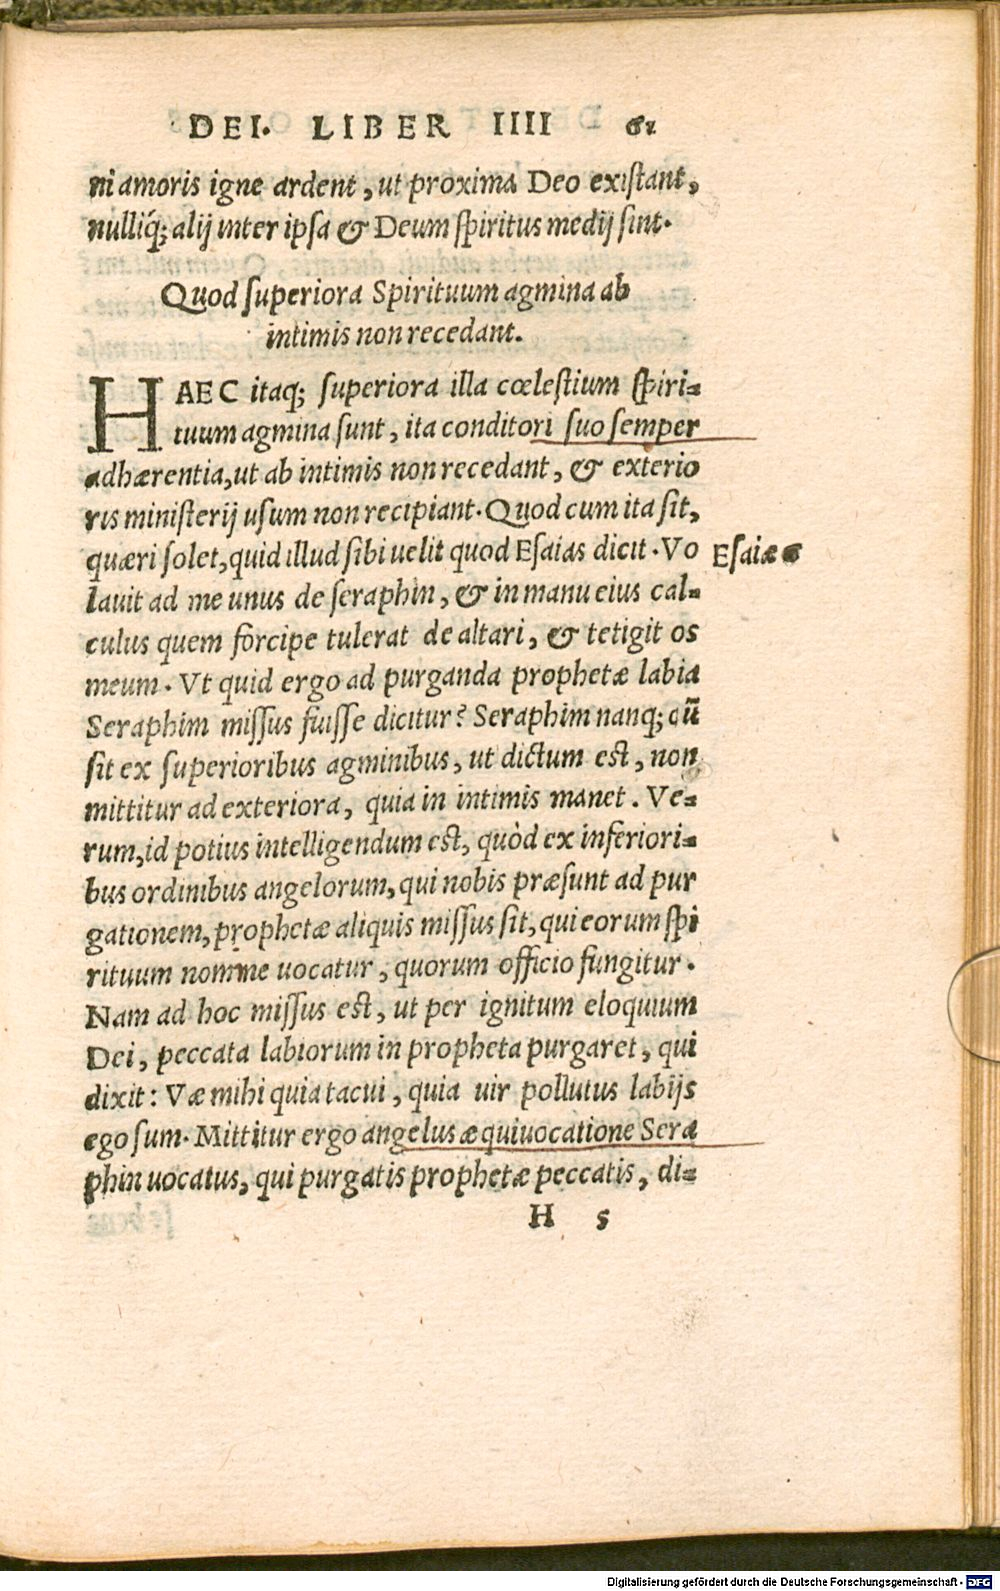 DEI. LIBER IIII 61
ni amoris igne ardent, ut proxima Deo existant,
nulliq́; alij inter ipsa & Deum spiritus medij sint.
Quod superiora Spirituum agmina ab
intimis non recedant.
HAEC itaq; superiora illa cœlestium spiri-
tuum agmina sunt, ita conditori suo semper
adhærentia, ut ab intimis non recedant, & exterio
ris ministerij usum non recipiant. Quod cum ita sit,
quæri solet, quid illud sibi uelit quod Esaias dicit. Vo
Esaiæ 6
lauit ad me unus de seraphin, & in manu eius cal-
culus quem forcipe tulerat de altari, & tetigit os
meum. Vt quid ergo ad purganda prophetæ labia
Seraphim missus fuisse dicitur? Seraphim nanq; cū
sit ex superioribus agminibus, ut dictum est, non
mittitur ad exteriora, quia in intimis manet. Ve-
rum, id potius intelligendum est, quòd ex inferiori-
bus ordinibus angelorum, qui nobis præsunt ad pur
gationem, prophetæ aliquis missus sit, qui eorum spi
rituum nomine uocatur, quorum officio fungitur.
Nam ad hoc missus est, ut per ignitum eloquium
Dei, peccata labiorum in propheta purgaret, qui
dixit: Væ mihi quia tacui, quia uir pollutus labijs
ego sum. Mittitur ergo angelus æquiuocatione Sera
phin uocatus, qui purgatis prophetæ peccatis, di-
H 5
Digitalisierung gefördert durch die Deutsche Forschungsgemeinschaft - DFG